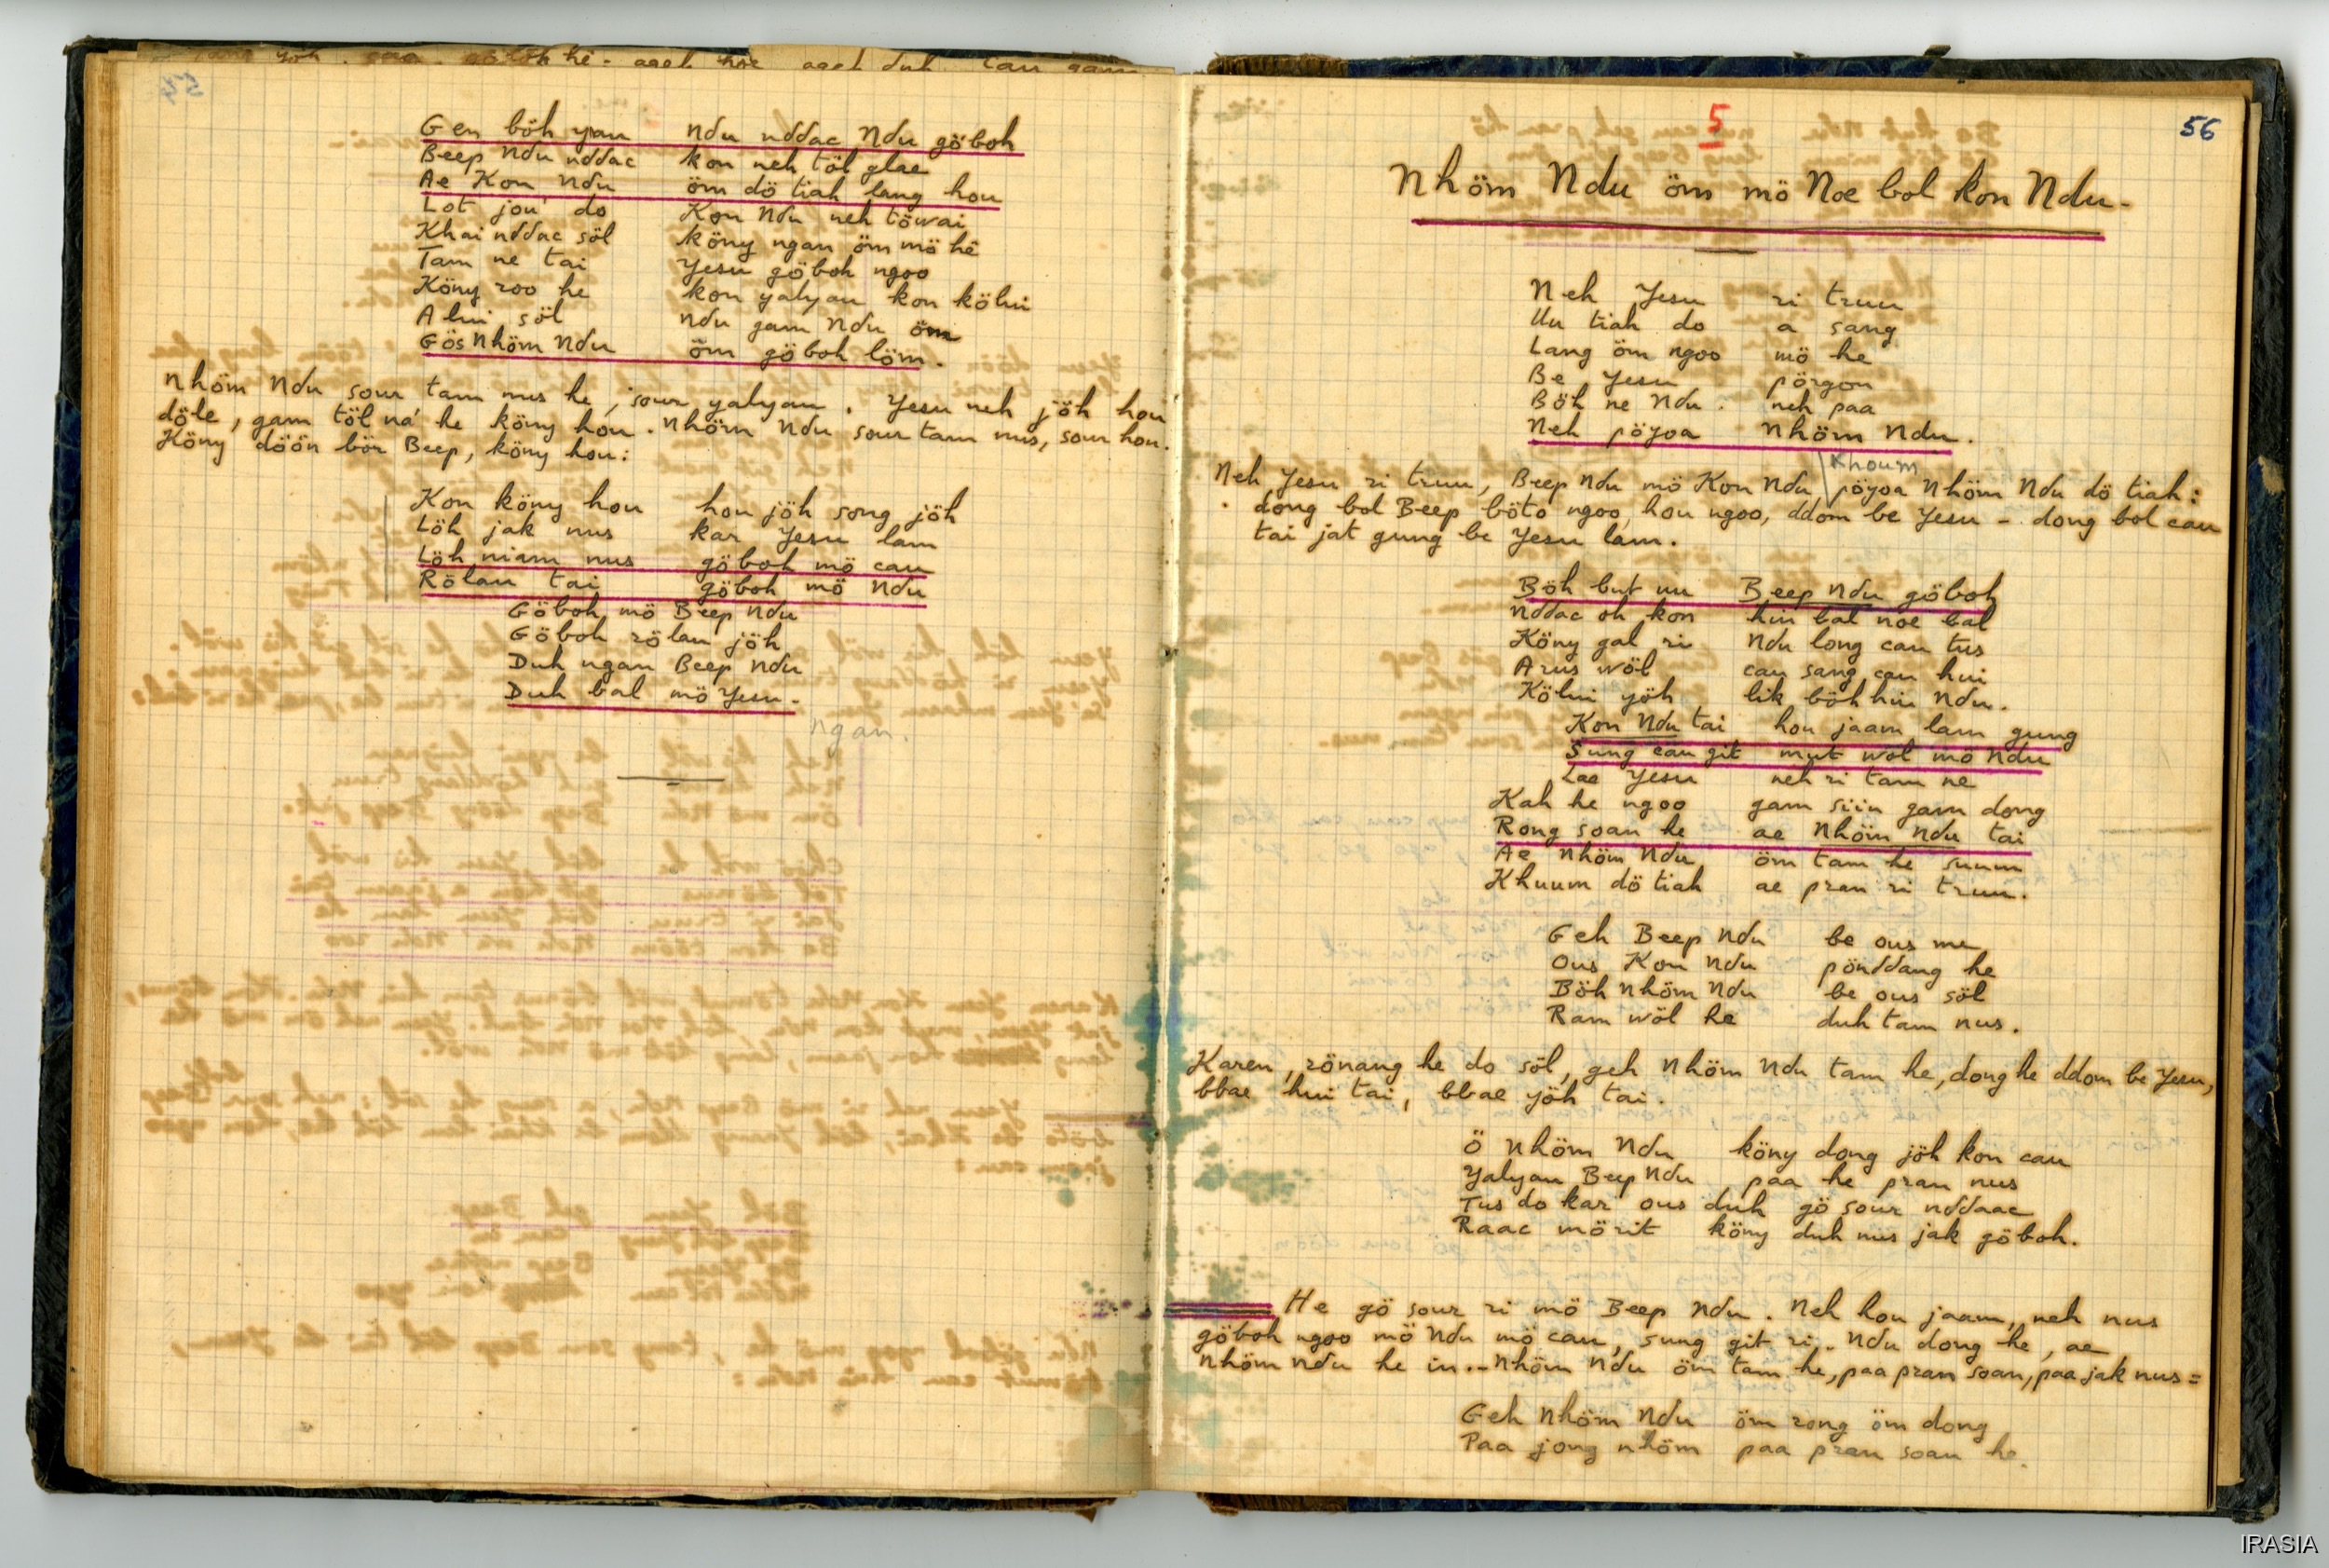 Gen böh yan ndu nddac Ndu göboh
Beep Ndu nddac kon neh töl glae
Ae Kon Ndu öm dö tiah lang hou
Lot jou do Kon Ndu neh töwai
Khai nddac söl köny ngan öm mö hê
Tam ne tai Yesu göboh ngoo
Köny roo he kon yalyau kon kölui
A lui söl ndu gam Ndu öm
Gös Nhöm Ndu öm göboh löm.
Nhöm Ndu sour tam nus he, sour yalyau. Yesu neh jöh hou
döle, gam töl ná he köny hou. Nhöm Ndu sour tam nus, sour hou.
Köny döön bör Beep, köny hou:
Kon köny hou hou jöh song jöh
Löh jak nus kar Yesu lam
Löh niam nus göboh mö cau
Rölau tai göboh mö Ndu
Göboh mö Beep Ndu
Göboh rölau jöh
Duh ngan Beep Ndu
Duh bal mö Yesu.
ngan.
5
56
Nhöm Ndu öm mö Noe bol kon Ndu.
Neh Yesu ri truu
Uu tiah do a sang
Lang öm ngoo mö he
Be Yesu pörgon
Böh ne Ndu. neh paa
Neh pöyoa Nhöm Ndu.
Khoum
Neh Yesu ri truu, Beep Ndu mö Kon Ndu pöyoa Nhöm Ndu dö tiah:
dong bol Beep böto ngoo, hou ngoo, ddom be Yesu - dong bol cau
tai jat gung be Yesu lam.
Böh but uu Beep Ndu göboh
Nddac oh kon hin bal noe bal
Köny gal ri Ndu long cau tus
Arus wöl cau sang cau hui
Kölui yöh lik böh hiu Ndu.
Kon Ndu tai hou jaam lam gung
Sung cau git mut wol mö Ndu
Lae Yesu neh ri tam ne
Kah he ngoo gam siin gam dong
Rong soan he ae Nhöm Ndu tai
Ae Nhöm Ndu öm tam he suum
Khuum dö tiah ae pran ri truu.
Geh Beep Ndu be ous me
Ous Kon Ndu pönddang he
Böh Nhöm Ndu be ous söl
Ram wöl he duh tam nus.
Karen, rönang he do söl, geh Nhöm Ndu tam he, dong he ddom be Yesu,
bbae hui tai, bbae yöh tai.
Ö Nhöm Ndu köny dong jöh kon cau
Yalyau Beep Ndu paa he pran nus
Tus do kar ous duh gö sour nddaac
Raac mörit köny duh nus jak göboh.
He gö sour ri mö Beep Ndu. Neh hou jaam, neh nus
göboh ngoo mö Ndu mö cau, sung git ri. Ndu dong he, ae
Nhöm Ndu he in. - Nhöm Ndu öm tam he, paa pran soan, paa jak nus =
Geh Nhöm Ndu öm rong öm dong
Paa jong nhöm paa pran soan he.
IRASIA